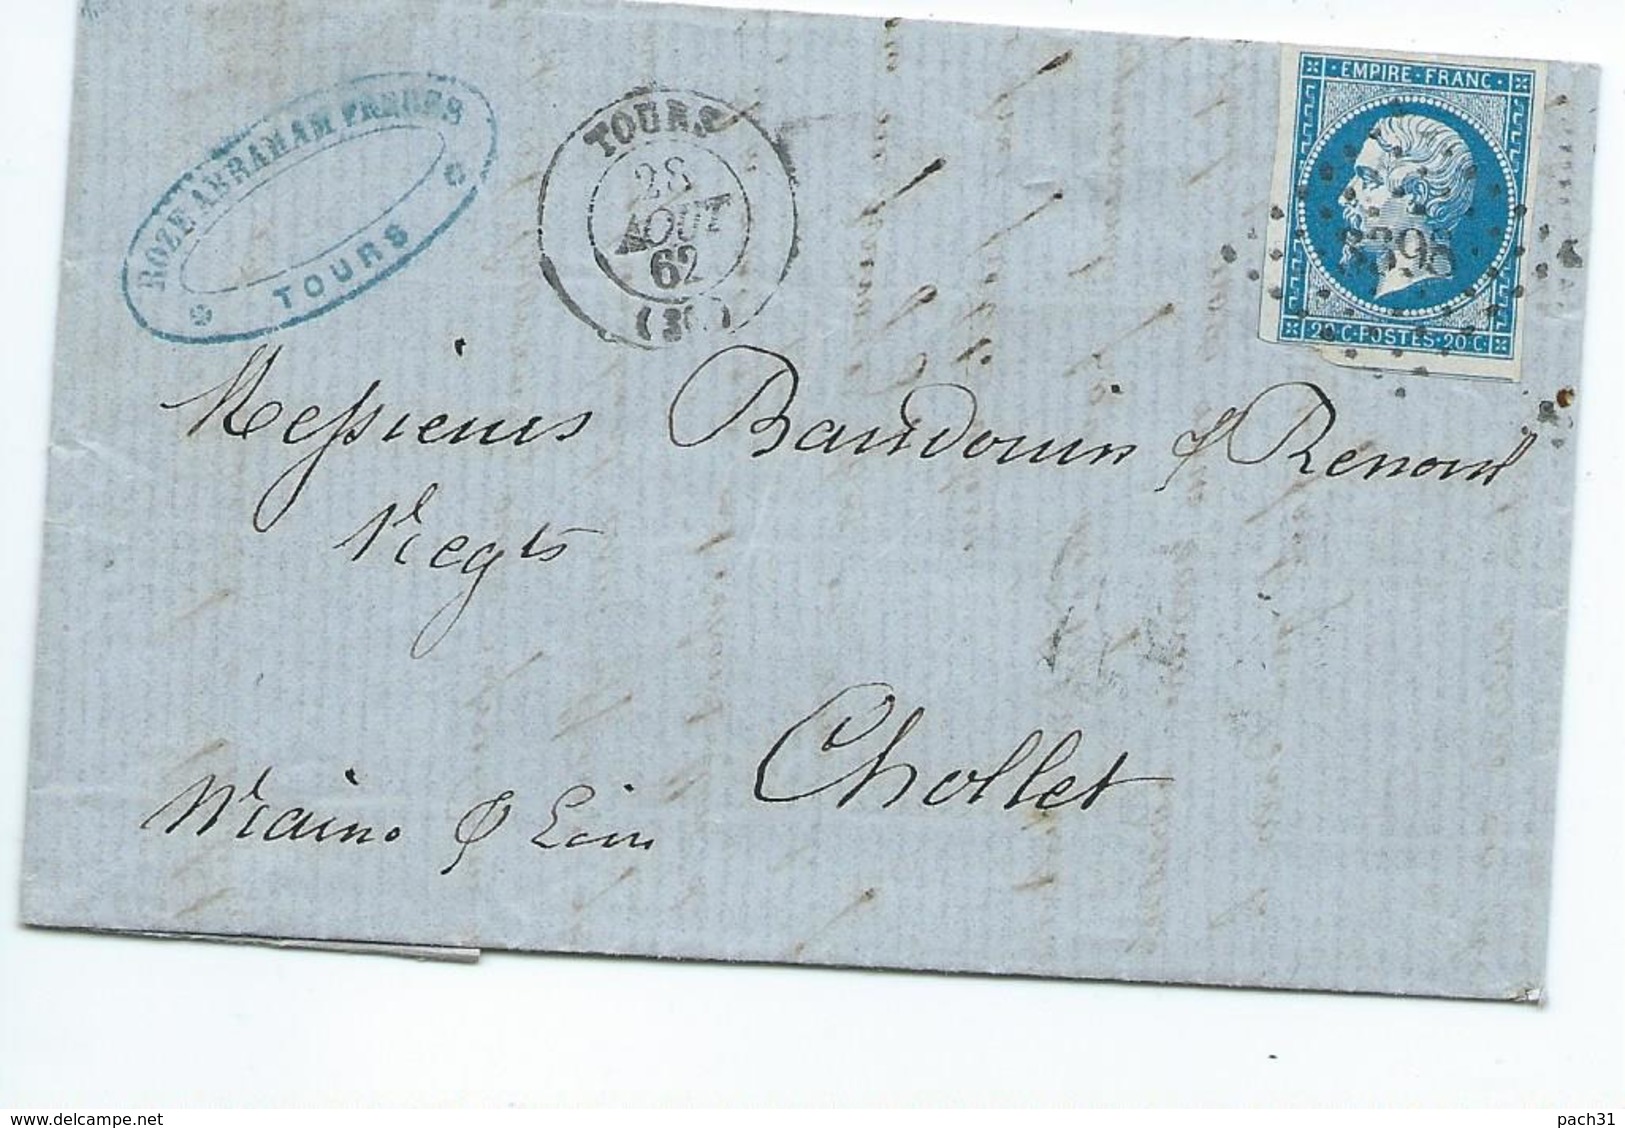 ROZE ABRAHAM FRERES
TOURS
TOURS
28
AOUT
62
EMPIRE · FRANC ·
3395
20 C · POSTES · 20 C ·
Messieurs Baudouin & Renout
Negts
Chollet
Maine & Loire
www.delcampe.net
pach31